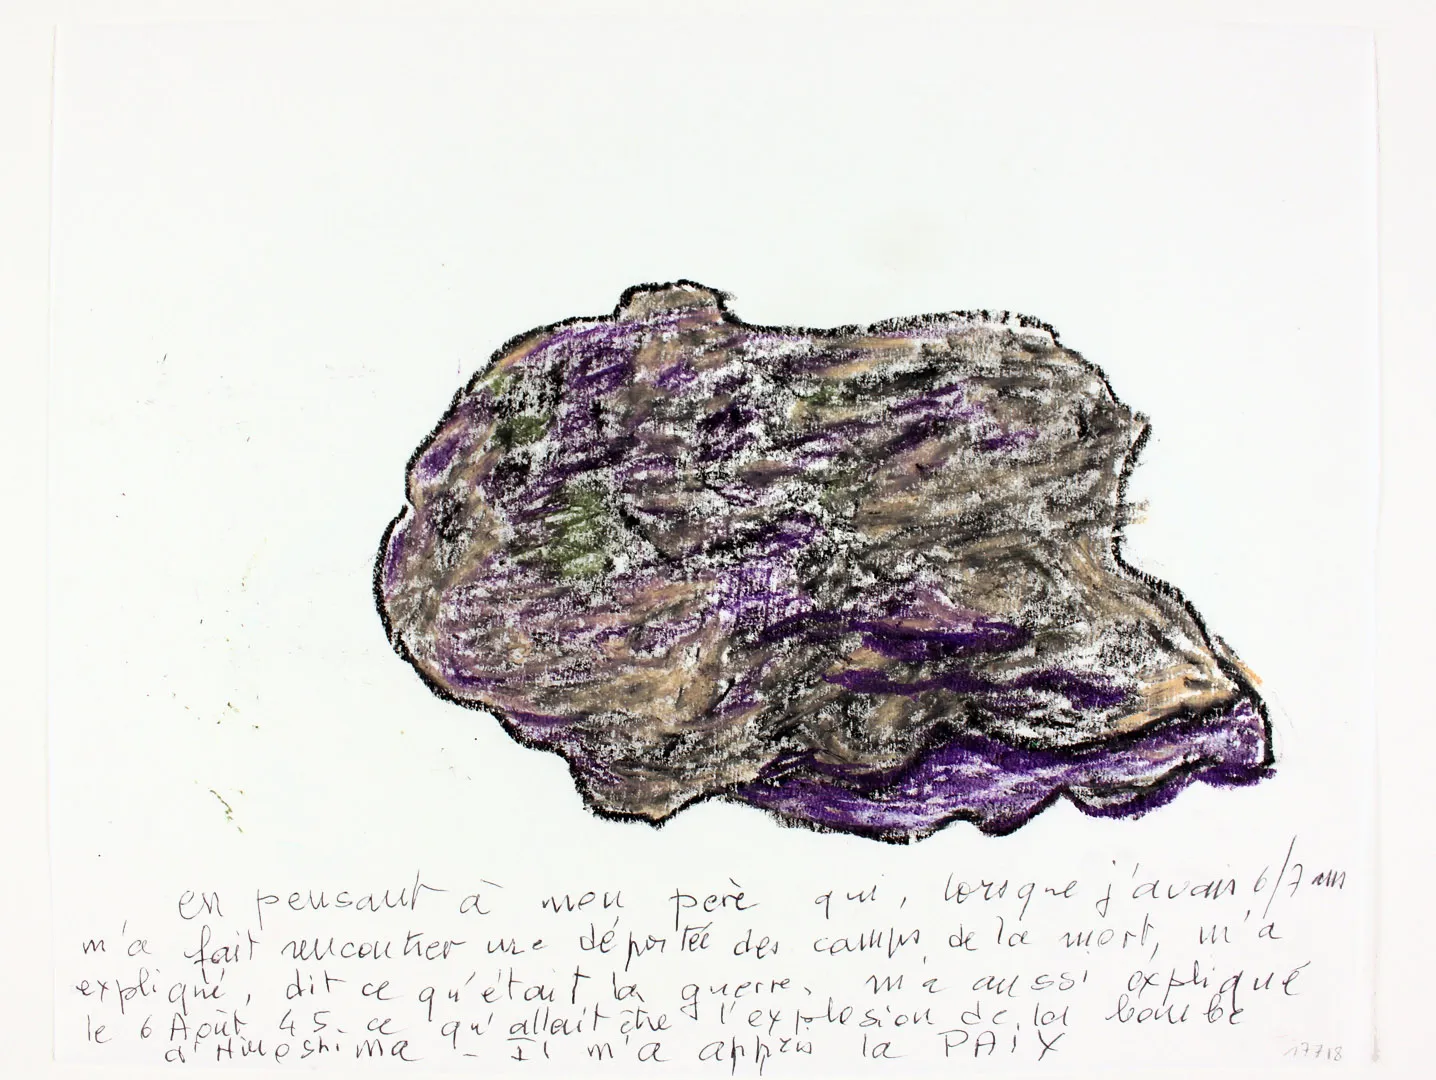 en pensant à mon père qui, lorsque j'avais 6/7 ans
m'a fait rencontrer une déportée des camps de la mort, m'a
expliqué, dit ce qu'était la guerre, m'a aussi expliqué
le 6 Août 45. ce qu'allait être l'explosion de la bombe
d'Hiroshima - Il m'a appris la PAIX
17718